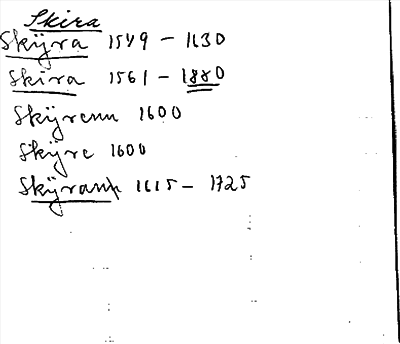 Skira
Skÿra 1549 - 1630
Skira 1561 - 1880
Skÿrenn 1600
Skÿre 1600
Skÿran 1615 - 1725